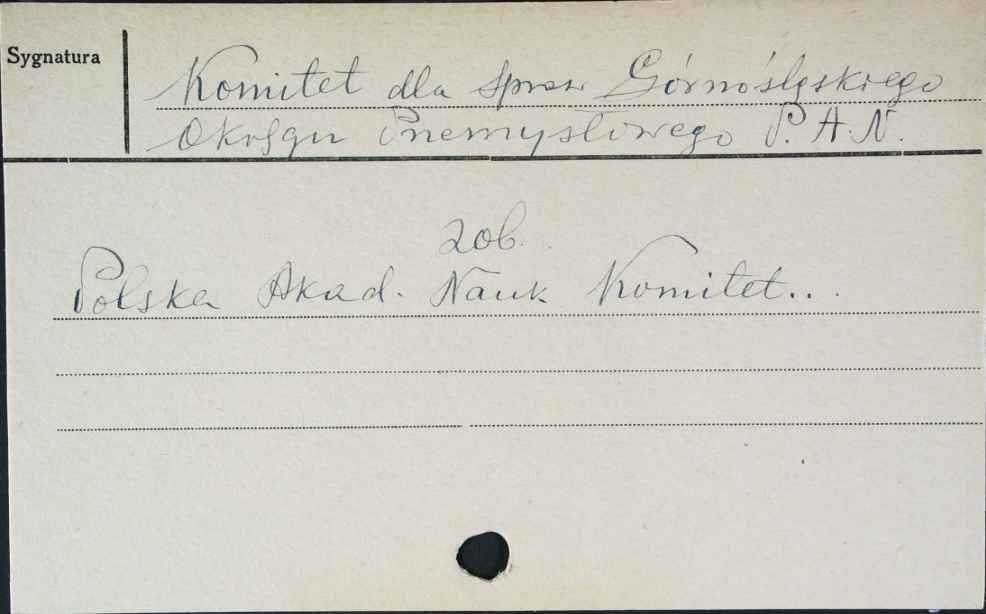 Sygnatura
Komitet dla Spraw Górnośląskiego
Okręgu Przemysłowego P.A.N.
zob.
Polska Akad. Nauk Komitet...